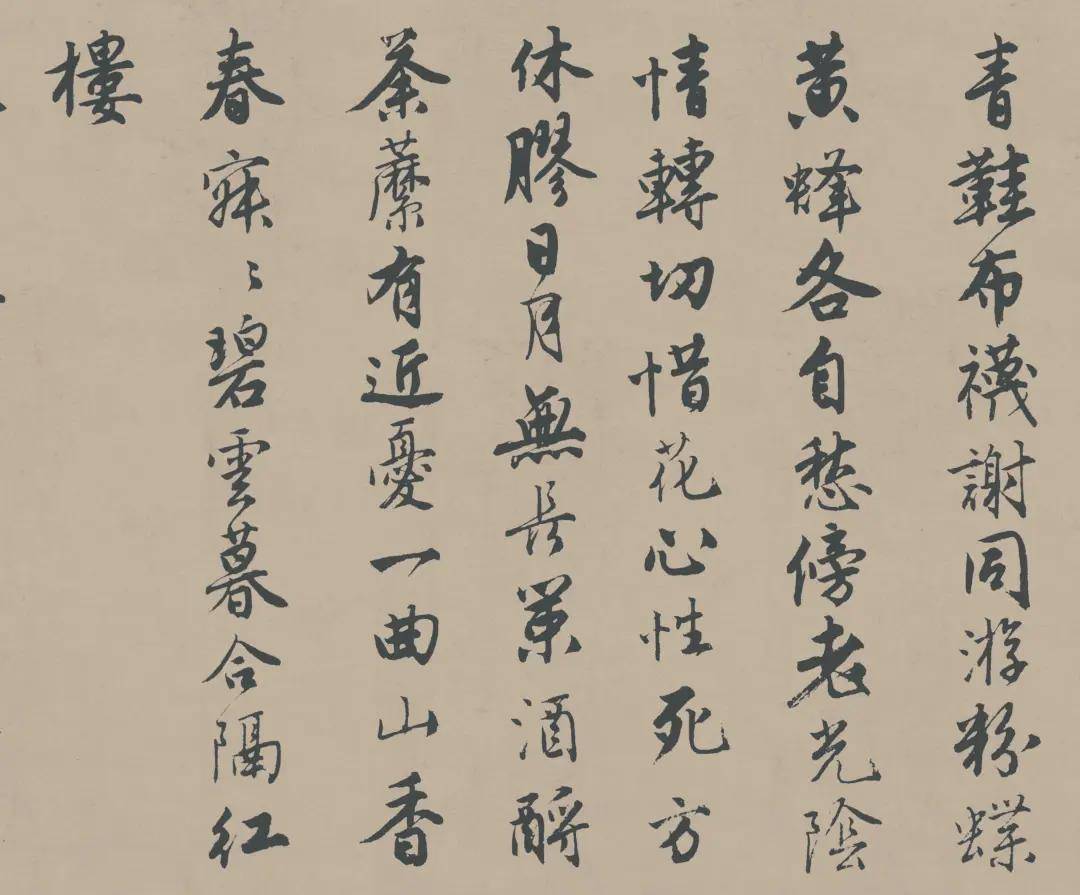 青鞋布襪謝同游粉蝶
黃蜂各自愁傍老光陰
情轉切惜花心性死方
休膠日月無長策酒酹
荼䕷有近憂一曲山香
春寂〻碧雲暮合隔紅
樓